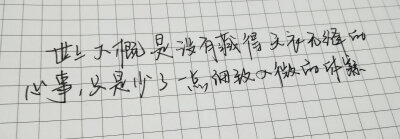 世上大概是没有藏得天衣无缝的
心事,只是少了一点细致入微的体察